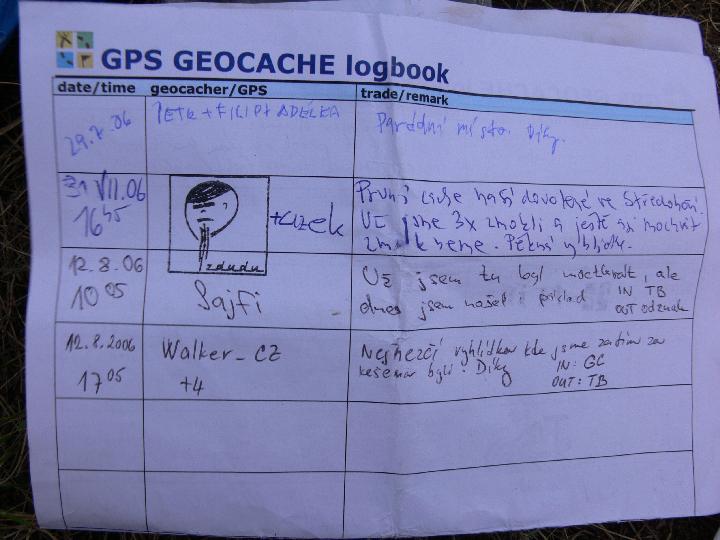 GPS GEOCACHE logbook
date/time geocacher/GPS trade/remark
29.7.06 PETR + FILIP + ADÉLEA Parádní místo. Díky.
31 VII.06
16 45
+czek
zdudu
První cache naší dovolené ve Středohoří.
Už jsme 3x zmokli a ještě asi
zmokneme. Pěkný výhled.
12.8.06
10 05
Sajfi
Už jsem tu byl moctkrát, ale
dnes jsem našel i poklad IN TB
OUT odznak
12.8.2006
17 05
Walker_CZ
+4
Nejhezčí vyhlídka kde jsme zatím za
kešema byli. Díky IN: GC
OUT: TB